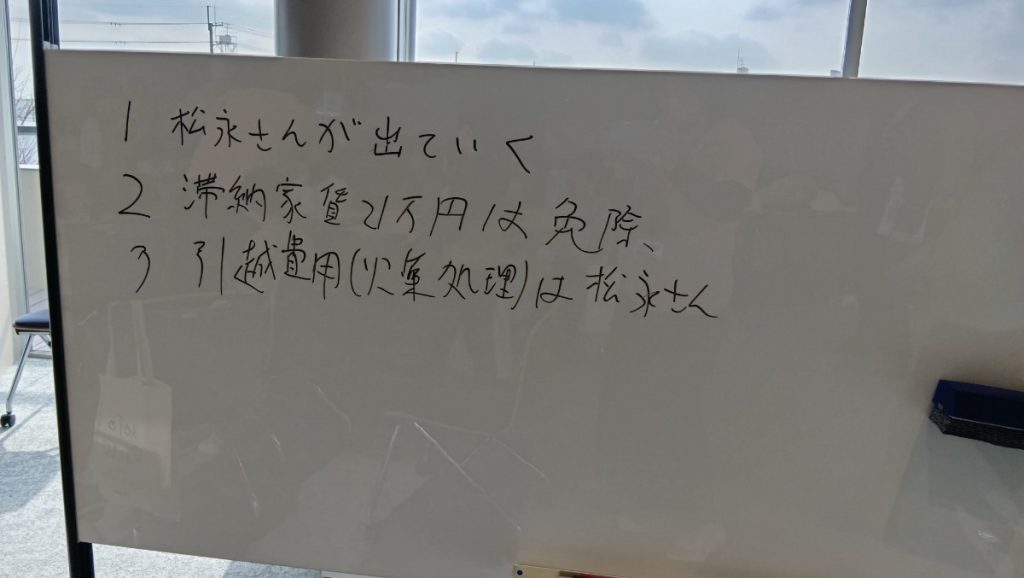 1 松永さんが出ていく
2 滞納家賃21万円は免除、
3 引越費用(欠棄処理)は松永さん